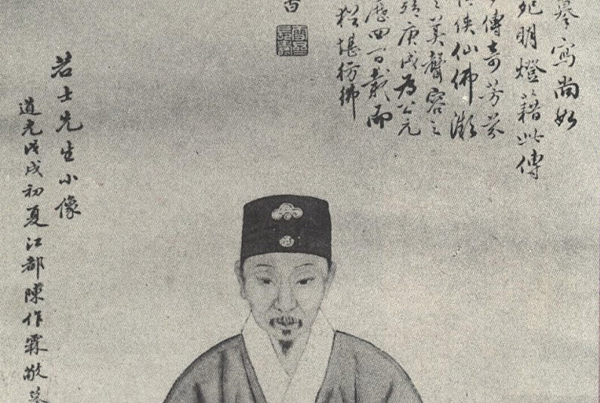 摹寫尚如
死明燈藉此傳
傳奇芳芬
俠仙佛
美聲容之
庚戌為公元
歷四百載而
猶堪彷彿
百
若士先生小像
道光戊戌初夏江都陳作霖敬摹